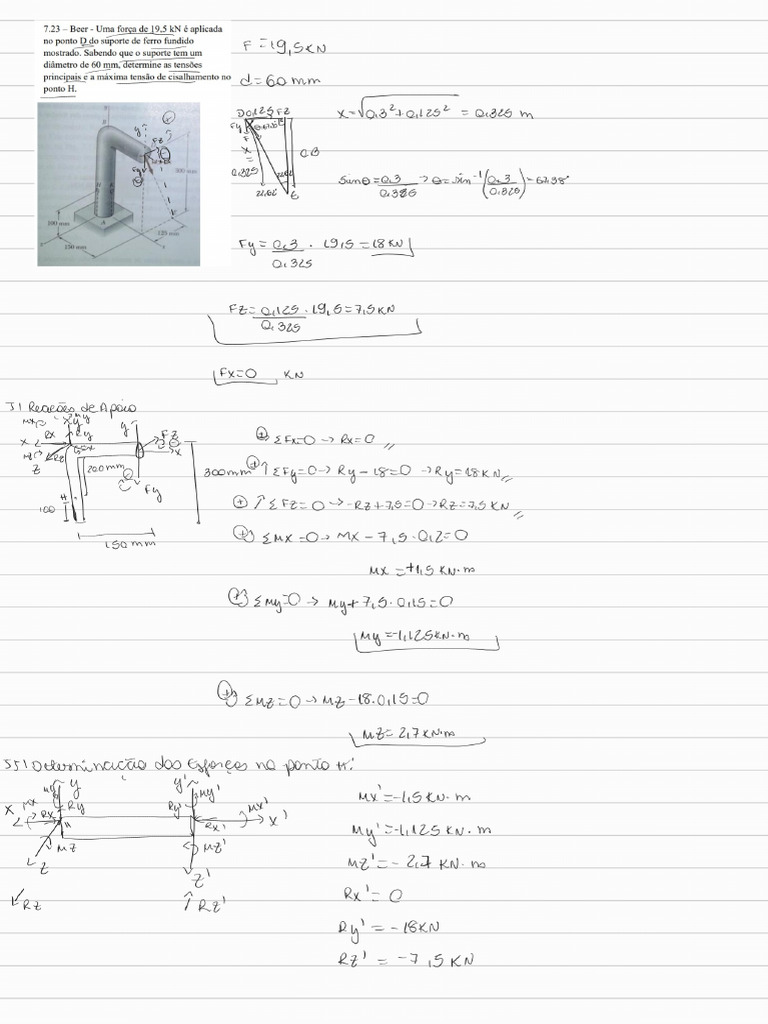 7.23 – Beer - Uma força de 19,5 kN é aplicada
no ponto D do suporte de ferro fundido
mostrado. Sabendo que o suporte tem um
diâmetro de 60 mm, determine as tensões
principais e a máxima tensão de cisalhamento no
ponto H.
F = 19,5KN
d = 60 mm
x = √0,3² + 0,125² = 0,325 m
D 0,125 FZ
Fy
F
x
=
0,325
0,3
22,62
E
300 mm
100 mm
125 mm
150 mm
Senθ = 0,3/0,325 → θ = sin⁻¹(0,3/0,325) = 67,38°
Fy = 0,3/0,325 . 19,5 = 18 KN
FZ = 0,125/0,325 . 19,5 = 7,5 KN
Fx = 0 KN
I) Reações de Apoio
x Rx Ry y
Z
FZ
x
200mm
300mm
Fy
H
100
150 mm
(+) ΣFx=0 → Rx=0
(+) ↑ ΣFy=0 → Ry-18=0 → Ry=18 KN
(+) ↑ ΣFZ=0 → -RZ+7,5=0 → RZ=7,5 KN
(+) ΣMX=0 → MX - 7,5 . 0,2=0
MX = +1,5 KN.m
(+) ΣMy=0 → My+7,5.0,15=0
My=-1,125KN.m
(+) ΣMZ=0 → MZ-18.0,15=0
MZ=2,7KN.m
II) Determinação dos Esforços no ponto H:
My y
X Mx Rx Ry
H
MZ
Z
RZ
y' My'
Ry'
Mx'
Rx' x'
MZ'
Z'
↑ RZ'
Mx'=-1,5 KN.m
My'=-1,125 KN.m
MZ'=-2,7 KN.m
Rx'=0
Ry'=-18KN
RZ'=-7,5 KN